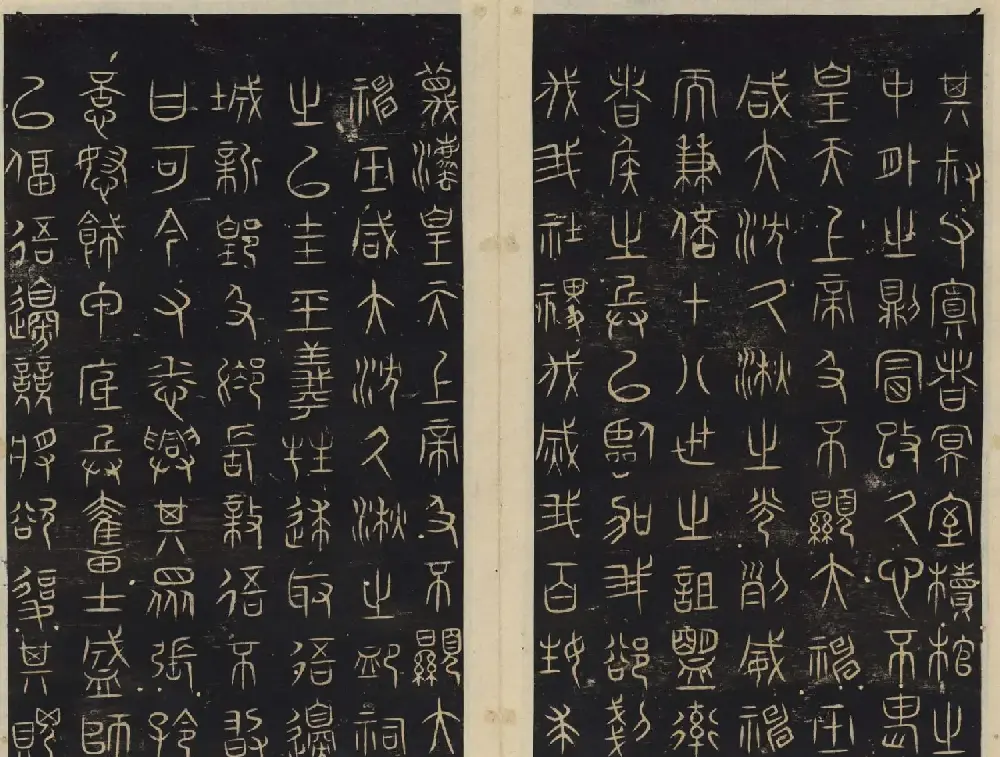 其叔父寘者冥室櫝棺之
中外之則冒改久心不畏
皇天上帝及不顯大神巫
咸大沈久湫之光列威神
而兼倍十八世之詛盟率
者侯之兵以臨加我欲剗
伐我社稷伐滅我百姓求
蔑灋皇天上帝及不顯大
神巫咸大沈久湫之卹祠
之以圭玉羲牲逑取吾邊
城新郢及長敖吾不敢
曰可今又悉興其眾張矜
意怒飾甲底兵奮士盛師
以偪吾邊競將欲復其